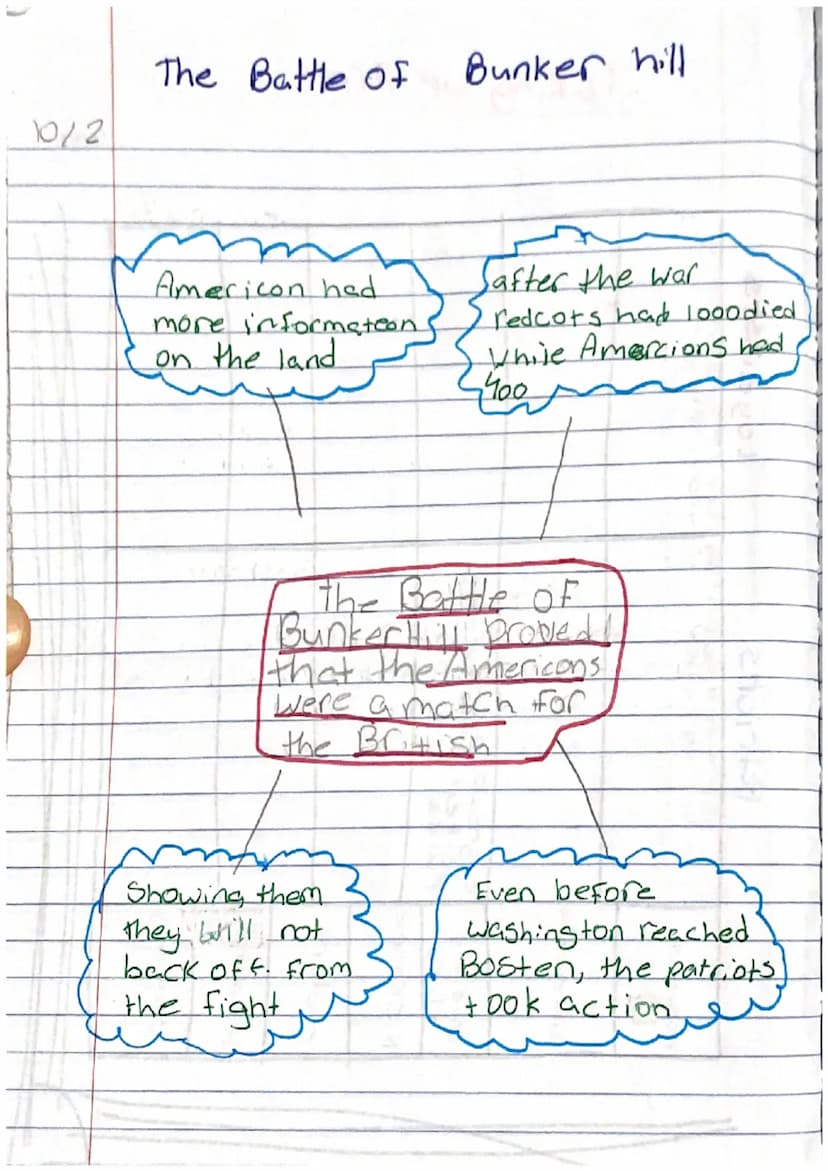 The Battle Of Bunker hill
10/2
Americon had
more informateon
on the land
after the war
redcots had 1000 died
while Amercions had
400
The Battle OF
Bunker Hill proved
that the Americons
were a match for
the British
Showing them
they will not
back off. from
the fight
Even before
washington reached
Bosten, the patriots
took action